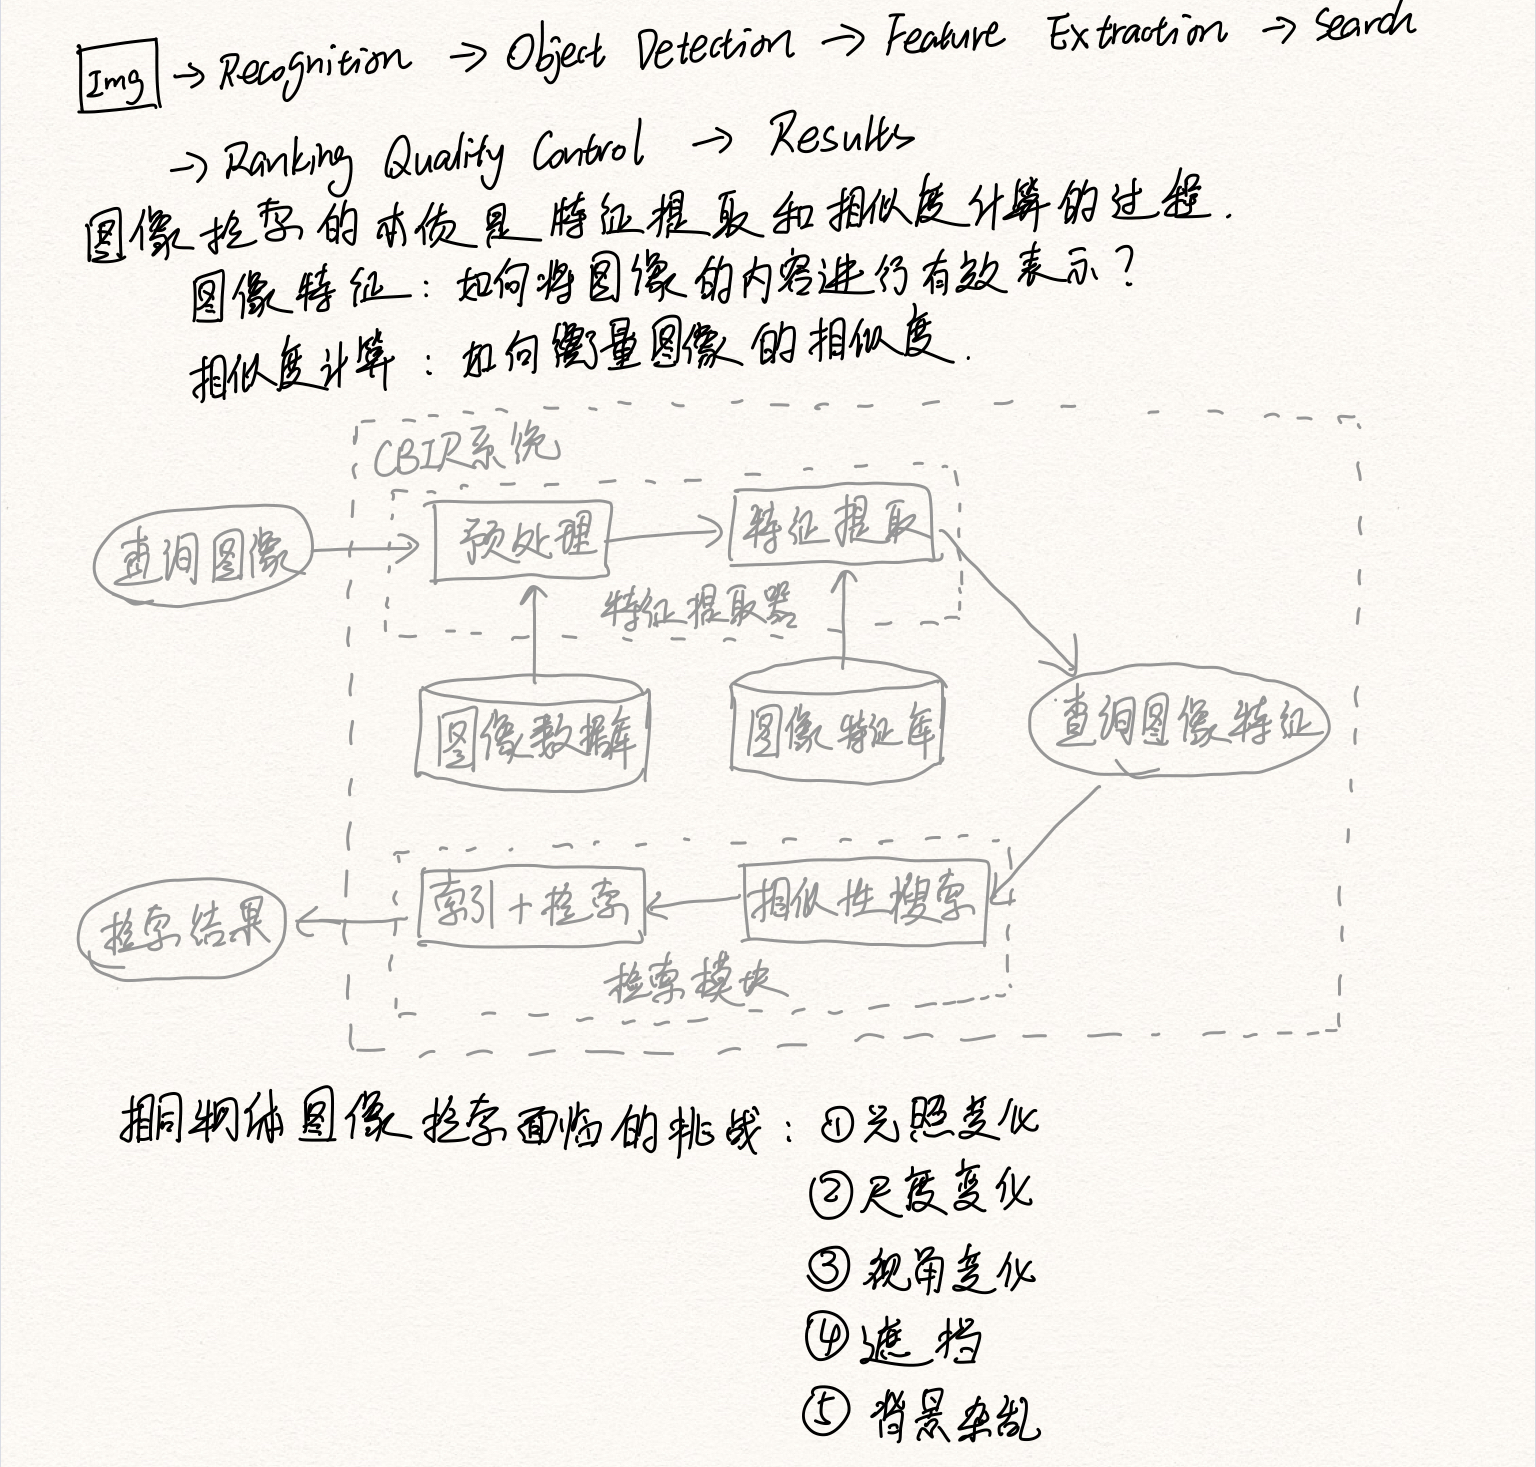 Img → Recognition → Object Detection → Feature Extraction → Search
→ Ranking Quality Control → Results
图像检索的本质是特征提取和相似度计算的过程.
图像特征：如何将图像的内容进行有效表示？
相似度计算：如何衡量图像的相似度.
CBIR系统
查询图像
预处理
特征提取
特征提取器
图像数据库
图像特征库
查询图像特征
检索结果
索引+检索
相似性搜索
检索模块
相同物体图像检索面临的挑战：①光照变化
②尺度变化
③视角变化
④遮挡
⑤背景杂乱